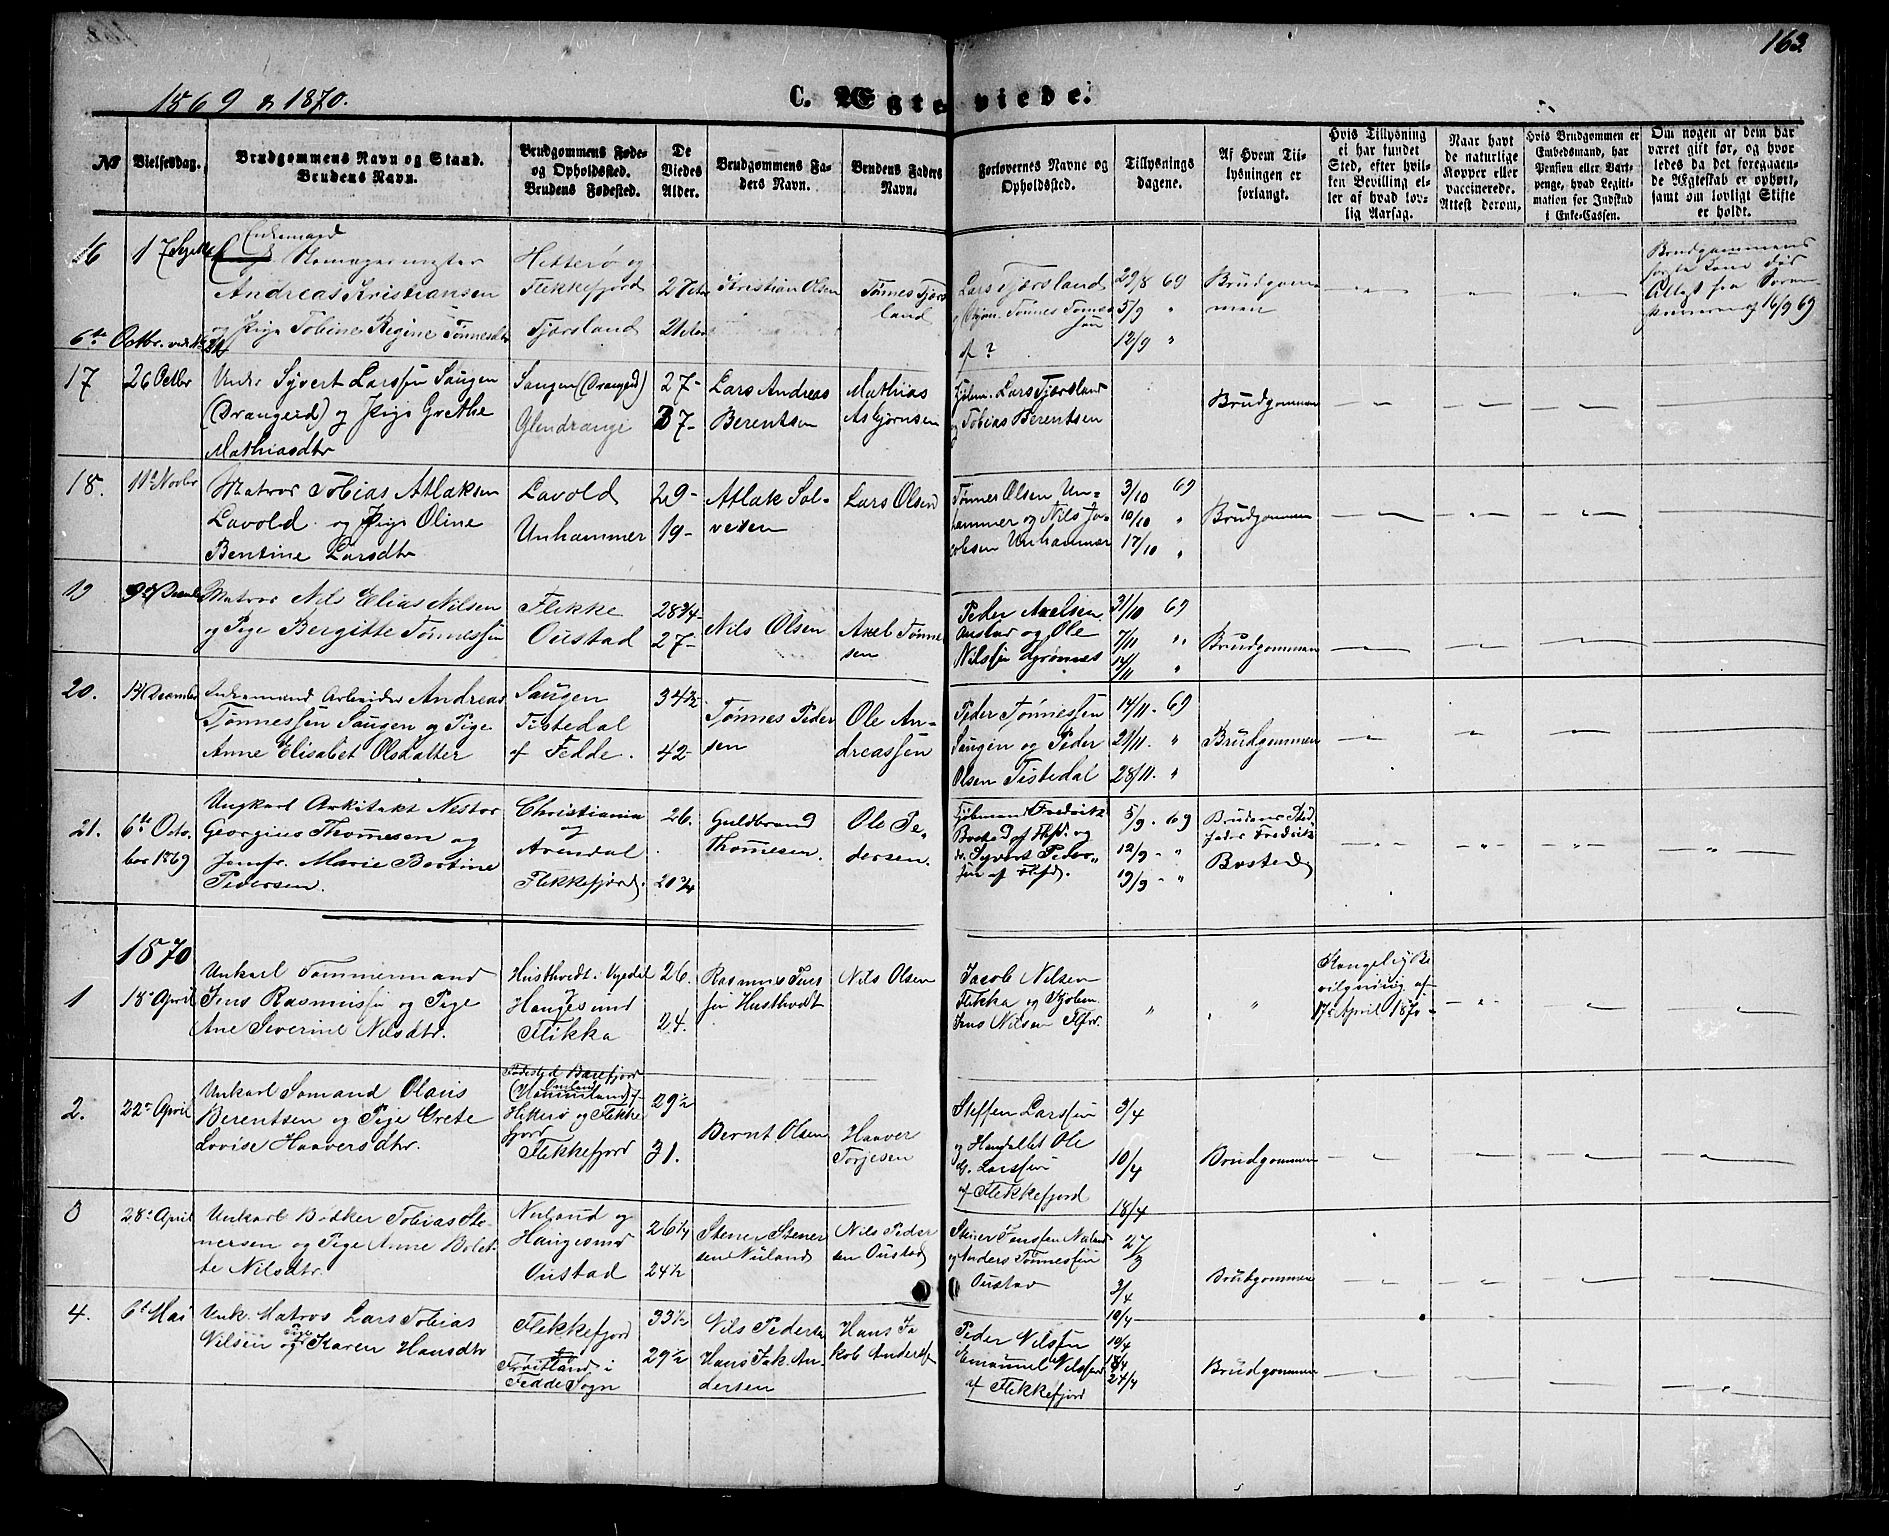 163.
1869 & 1870.
C. Ægteviede.
No
Vielsesdag.
Brudgommens Navn og Stand.
Brudens Navn.
Brudgommens Føde-
og Opholdssted.
Brudens Fødested.
De
Viedes
Alder.
Brudgommens Fa-
ders Navn.
Brudens Faders
Navn.
Forlovernes Navne og
Opholdssted.
Tillysnings
dagene.
Af Hvem Til-
lysningen er
forlangt.
Hvis Tillysning
ei har fundet
Sted, efter hvil-
ken Bevilling el-
ler af hvad lov-
lig Aarsag.
Naar havt
de naturlige
Kopper eller
vaccinerede.
Attest derom.
Hvis Brudgommen er
Embedsmand, har
Pension eller Vart-
penge, hvad Legiti-
mation for Indskud
i Enke-Cassen.
Om nogen af dem har
været gift før, og hvor-
ledes da det foregaaen-
de Ægteskab er ophørt,
samt om lovligt Skifte
er holdt.
16
17 Septbr
Enkemand
Andreas Kristiansen
og Pige Tobine Regine Tønnesdtr
Hitterø og
Flekkefjord
Fjærsland
27
21
Kristian Olsen
Tønnes Fjærs
land
Lars Fjærsland
og Tønnes Tønnes
sen
af ?
29/8 69
5/9 "
12/9 "
Brudgom
men
Brudgommens
første Kone død
Attest fra
16/9 69
6te Octbr. No 21
17
26 Octbr
Unkr Syvert Larssen Saugen
(Drangeid) og Pige Grethe
Mathiasdtr
Saugen (Drangeid)
Glendrange
27-
37-
Lars Andreas
Berentsen
Mathias
Asbjørnsen
Kjøbm. Lars Fjærsland
og Tobias Berentsen
Brudgommen
18.
11te Novbr
Matros Tobias Atlaksen
Lavold og Pige Oline
Bentine Larsdtr
Lavold
Unhammer
29-
19-
Atlak Sal-
vesen
Lars Olsen
Tønnes Olsen Un-
hammer og Nils Ja-
cobsen Unhammer
3/10 69
10/10 "
17/10 "
Brudgommen
19
9de December
Matros Nils Elias Nilsen
og Pige Bergitte Tønnessen
Flikke
Oustad
28 3/4
27-
Nils Olsen
Axel Tønne
sen
Peder Axelsen
Oustad og Ole
Nilssen Grønnes
31/10 69
7/11 "
14/11 "
Brudgommen
20.
14 December
Enkemand Arbeider Andreas
Tønnessen Saugen og Pige
Anne Elisabet Olsdatter
Saugen
Tistedal
af Fedde.
34 1/2
42-
Tønnes Peder
sen
Ole An-
dreassen
Peder Tønnessen
Saugen og Peder
Olsen Tistedal
14/11. 69
21/11. "
28/11. "
Brudgommen
21.
6te Octo.
ber 1869
Ungkarl Arkitekt Nestor
Georgius Thomesen og
Jomfr. Marie Bertine
Pedersen.
Christiania
og
Arendal
Flekkefjord.
26.
20 3/4
Guldbrand
Thomesen.
Ole Pe-
dersen.
Kjøbmand Fredrik
Bosted af Flfjd. og
do. Syvert Peder-
sen af Flfjd.
5/9. 69
12/9 - "
19/9 - "
Brudens Sted
fader Fredrik
Bosted
1870
1
18 April
Unkarl Tømmermand
Jens Rasmussen og Pige
Ane Severine Nilsdtr.
Husthvedt i Vigedal
Haugesund
Flikka
26.
24.
Rasmus Jens
sen Husthvedt
Nils Olsen
Jacob Nilsen
Flikka og Kjøbm.
Jens Nilsen Flfjor.
"
"
Kongelig Be
vilgning af
17de April 1870
2.
22de April
Unkarl Sømand Olaus
Berentsen og Pige Grete
Lovise Haaversdtr.
Hitterø og Flekke
fjord
Flekkefjord
29 1/2
31.
Bernt Olsen
Haaver
Torjesen
Steffen Larssen
og Handelbet Ole
G. Larssen
af Flekkefjord
3/4
10/4
18/4
Brudgommen
3
28de April
Unkarl Bødker Tobias Ste-
nersen og Pige Anne Bolet-
te Nilsdtr.
Nuland og
Haugesund
Oustad
26 1/4
24 1/2
Stener Stener
sen Nuland
Nils Peder
sen Oustad
Stener Jenssen Nuland
og Anders Tønnessen
Oustad
27/3
3/4
10/4
Brudgommen
4.
6te Mai
Unk. Matros Lars Tobias
Nilsen og Pige Karen Hansdtr
Flekkefjord
Frøitland i
Fedde Sogn
33 1/2
29 1/2
Nils Pedersen
Hans Jak. An-
dersen
Hans Ja
kob Anderssen
Peder Nilssen
Emanuel Nilssen
af Flekkefjord
10/4
18/4
24/4
Brudgommen